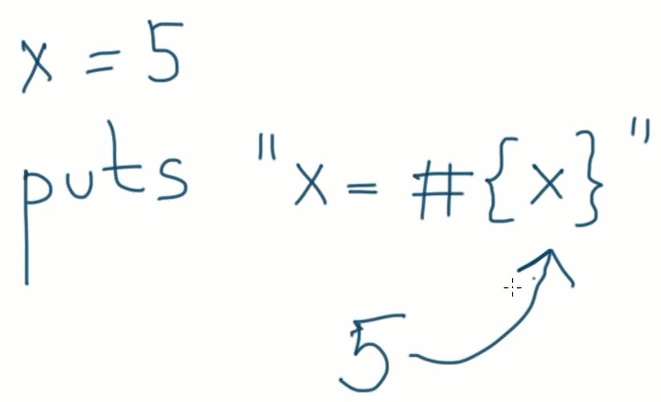 x = 5
puts "x = #{x}"
5